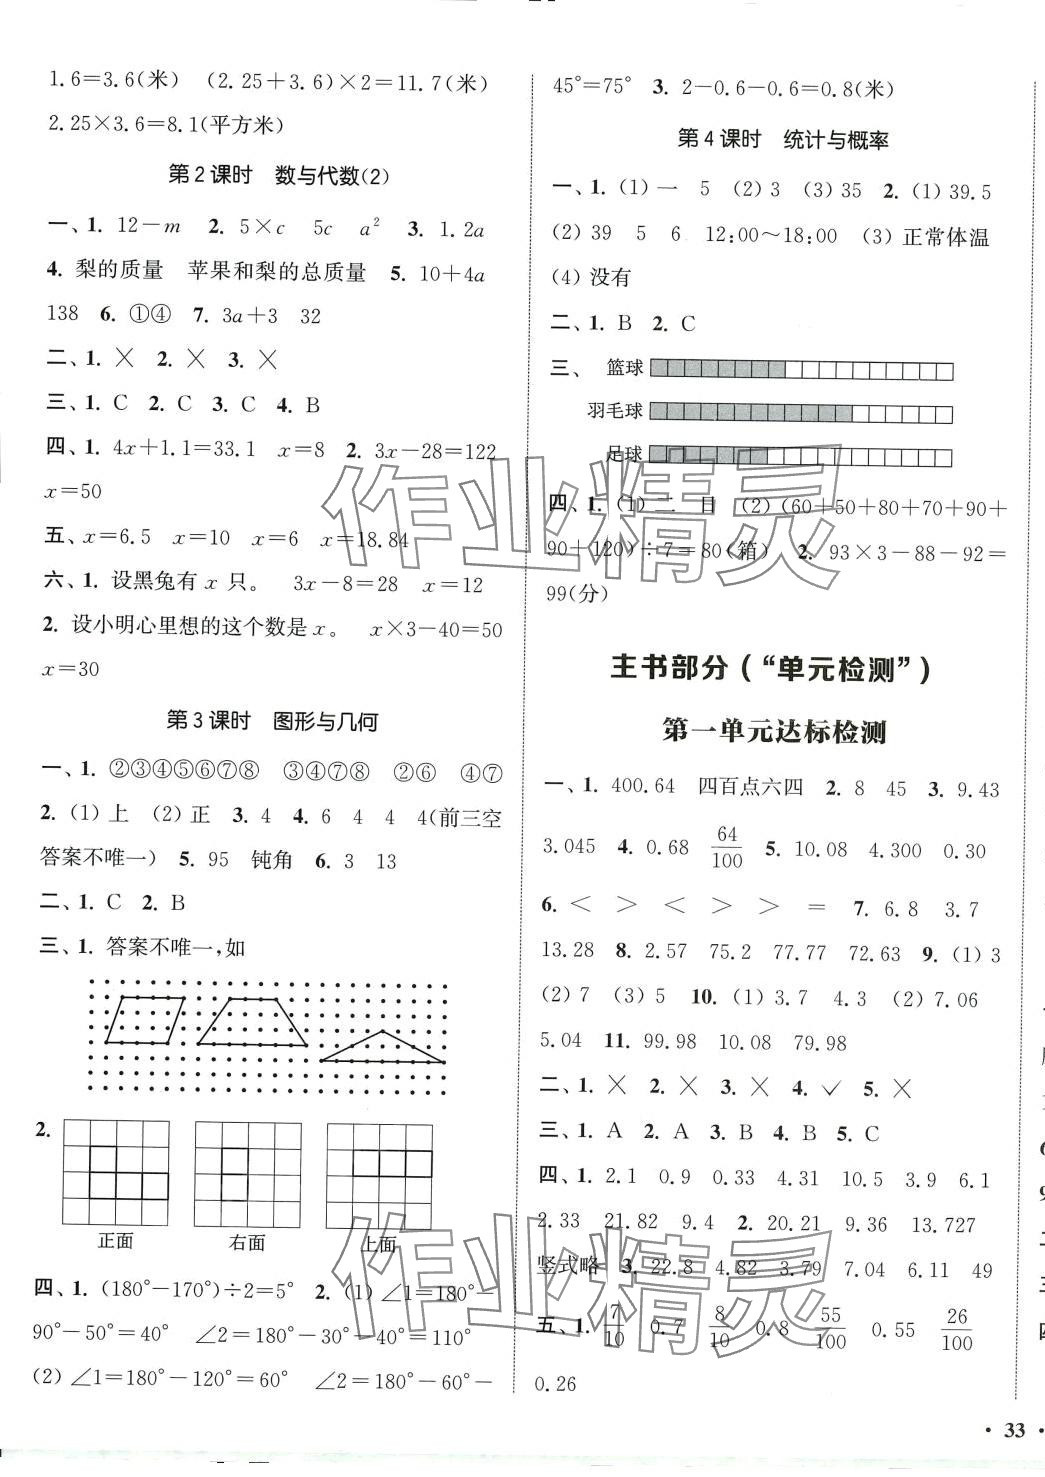 1.6=3.6(米) (2.25+3.6)×2=11.7(米)
2.25×3.6=8.1(平方米)
第2课时 数与代数(2)
一、1. 12-m 2. 5×c 5c a² 3. 1.2a
4. 梨的质量 苹果和梨的总质量 5. 10+4a
138 6. ①④ 7. 3a+3 32
二、1. × 2. × 3. ×
三、1. C 2. C 3. C 4. B
四、1. 4x+1.1=33.1 x=8 2. 3x-28=122
x=50
五、x=6.5 x=10 x=6 x=18.84
六、1. 设黑兔有 x 只。 3x-8=28 x=12
2. 设小明心里想的这个数是 x。 x×3-40=50
x=30
第3课时 图形与几何
一、1. ②③④⑤⑥⑦⑧ ③④⑦⑧ ②⑥ ④⑦
2. (1)上 (2)正 3. 4 4. 6 4 4 4(前三空
答案不唯一) 5. 95 钝角 6. 3 13
二、1. C 2. B
三、1. 答案不唯一,如
2.
正面 右面 上面
四、1. (180°-170°)÷2=5° 2. (1)∠1=180°-
90°-50°=40° ∠2=180°-30°-40°=110°
(2)∠1=180°-120°=60° ∠2=180°-60°-
45°=75° 3. 2-0.6-0.6=0.8(米)
第4课时 统计与概率
一、1. (1)一 5 (2)3 (3)35 2. (1)39.5
(2)39 5 6 12:00~18:00 (3)正常体温
(4)没有
二、1. B 2. C
三、 篮球
羽毛球
足球
四、1. (1)二 日 (2)(60+50+80+70+90+
90+120)÷7=80(箱) 2. 93×3-88-92=
99(分)
主书部分(“单元检测”)
第一单元达标检测
一、1. 400.64 四百点六四 2. 8 45 3. 9.43
3.045 4. 0.68 64/100 5. 10.08 4.300 0.30
6. < > < > > = 7. 6.8 3.7
13.28 8. 2.57 75.2 77.77 72.63 9. (1)3
(2)7 (3)5 10. (1)3.7 4.3 (2)7.06
5.04 11. 99.98 10.08 79.98
二、1. × 2. × 3. × 4. √ 5. ×
三、1. A 2. A 3. B 4. B 5. C
四、1. 2.1 0.9 0.33 4.31 10.5 3.9 6.1
2.33 21.82 9.4 2. 20.21 9.36 13.727
竖式略 3. 22.8 4.82 3.79 7.04 6.11 49
五、1. 7/10 0.7 8/10 0.8 55/100 0.55 26/100
0.26
• 33 •
作业精灵
作业精灵